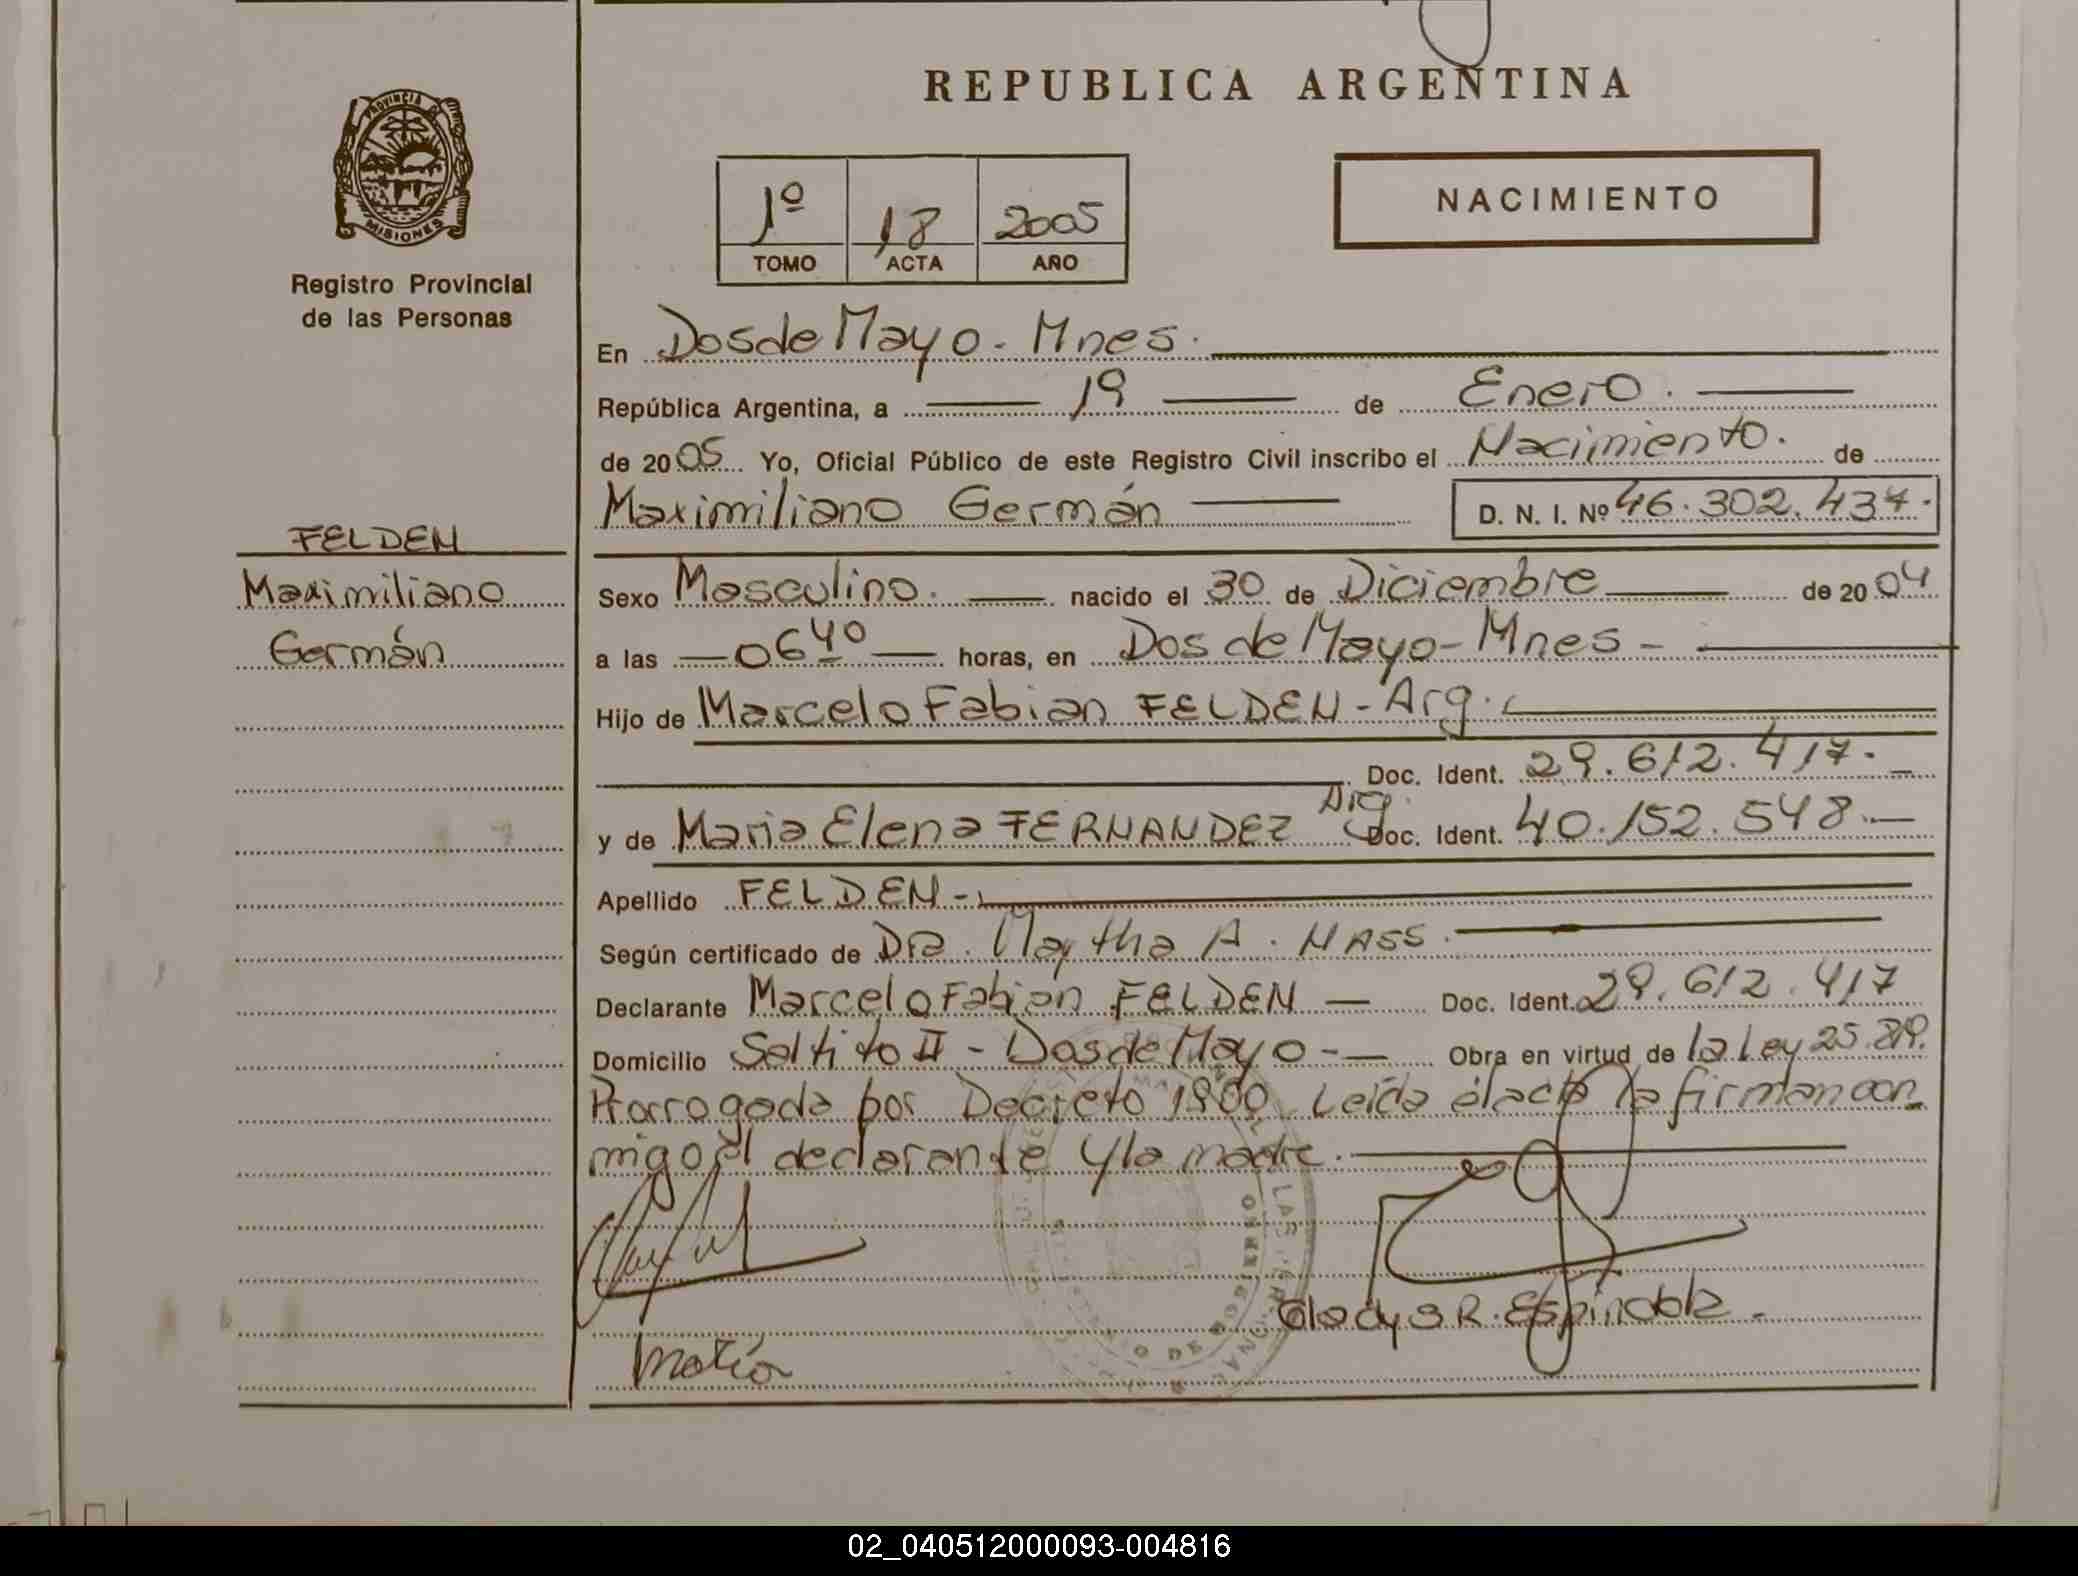 REPUBLICA ARGENTINA
PROVINCIA DE
MISIONES
Registro Provincial
de las Personas
1º 18 2005
TOMO ACTA AÑO
NACIMIENTO
En Dos de Mayo - Mnes.
República Argentina, a 19 de Enero.
de 2005 Yo, Oficial Público de este Registro Civil inscribo el Nacimiento. de
Maximiliano Germán D. N. I. Nº 46.302.434.
FELDEN
Maximiliano
Germán
Sexo Masculino. nacido el 30 de Diciembre de 2004
a las 06 40 horas, en Dos de Mayo - Mnes -
Hijo de Marcelo Fabian FELDEN - Arg.
Doc. Ident. 29.612.417.-
y de Maria Elena FERNANDEZ Arg. Doc. Ident. 40.152.548.-
Apellido FELDEN -
Según certificado de Dra. Martha A. NASS.
Declarante Marcelo Fabian FELDEN - Doc. Ident. 29.612.417
Domicilio Saltito II - Dos de Mayo - Obra en virtud de la Ley 25.819.
Prorrogada por Decreto 1800. Leída el acta la firman con
migo el declarante y la madre.
Gladys R. Espindola.
02_040512000093-004816